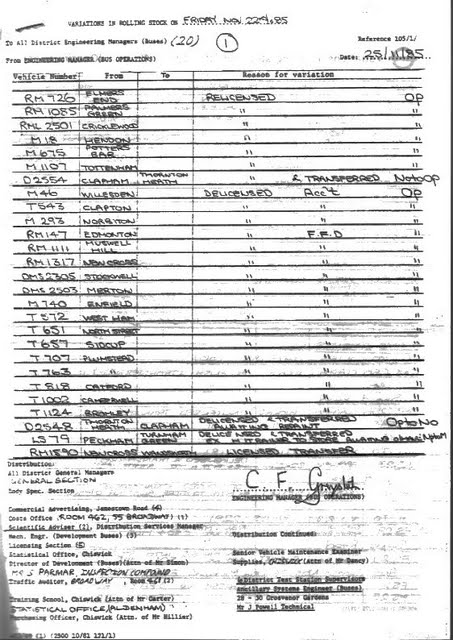 VARIATIONS IN ROLLING STOCK ON FRIDAY NOV 22nd, 85
To All District Engineering Managers (Buses) (20) 1 Reference 105/1/
From ENGINEERING MANAGER (BUS OPERATIONS) Date: 25/11/85
Vehicle Number From To Reason for variation
RM 726 ELMERS END RELICENSED Op
RM 1085 PALMERS GREEN " "
RML 2501 CRICKLEWOOD " "
M 18 HENDON " "
M 675 POTTERS BAR " "
M 1107 TOTTENHAM " "
D2554 CLAPHAM THORNTON HEATH " & TRANSFERRED No to Op
M 46 WILLESDEN DELICENSED Acc't Op
T 543 CLAPTON " " "
M 293 NORBITON " " "
RM 147 EDMONTON " F.F.D "
RM 1111 MUSWELL HILL " " "
RM 1317 NEW CROSS " " "
DMS 2305 STOCKWELL " " "
DMS 2503 MERTON " " "
M 740 ENFIELD " " "
T 572 WEST HAM " " "
T 651 NORTH STREET " " "
T 657 SIDCUP " " "
T 707 PLUMSTEAD " " "
T 763 " " " "
T 818 CATFORD " " "
T 1002 CAMBERWELL " " "
T 1124 BROMLEY " " "
D2548 THORNTON HEATH CLAPHAM DELICENSED & TRANSFERRED AWAITING REPAINT Op to No
LS 79 PECKHAM TURNHAM GREEN DELICENSED & TRANSFERRED
RM 1590 NEW CROSS LICENSED TRANSFER
Distribution:
All District General Managers
GENERAL SECTION
Body Spec. Section
ENGINEERING MANAGER (BUS OPERATIONS)
Commercial Advertising, Jamestown Road (4)
Costs Office (ROOM 462, 55 BROADWAY) (1)
Scientific Adviser (2), Distribution Services Manager
Mech. Engr. (Development Buses) (3) Distribution Continued:
Licensing Section
Statistical Office, Chiswick Senior Vehicle Maintenance Examiner
Director of Development (Buses)(Attn of Mr Simon) Supplies, CHISWICK (Attn of Mr Dancy)
PARMAR,
Traffic Auditor, BROADWAY (2) District Test Station Supervisors
Ancillary Systems Engineer (Buses)
Training School, Chiswick (Attn of Mr Carter) 28 - 30 Grosvenor Gardens
STATISTICAL OFFICE (ALDENHAM) Mr J Powell Technical
Purchasing Officer, Chiswick (Attn of Mr Hillier)
(1) (2500 10/81 171/1)